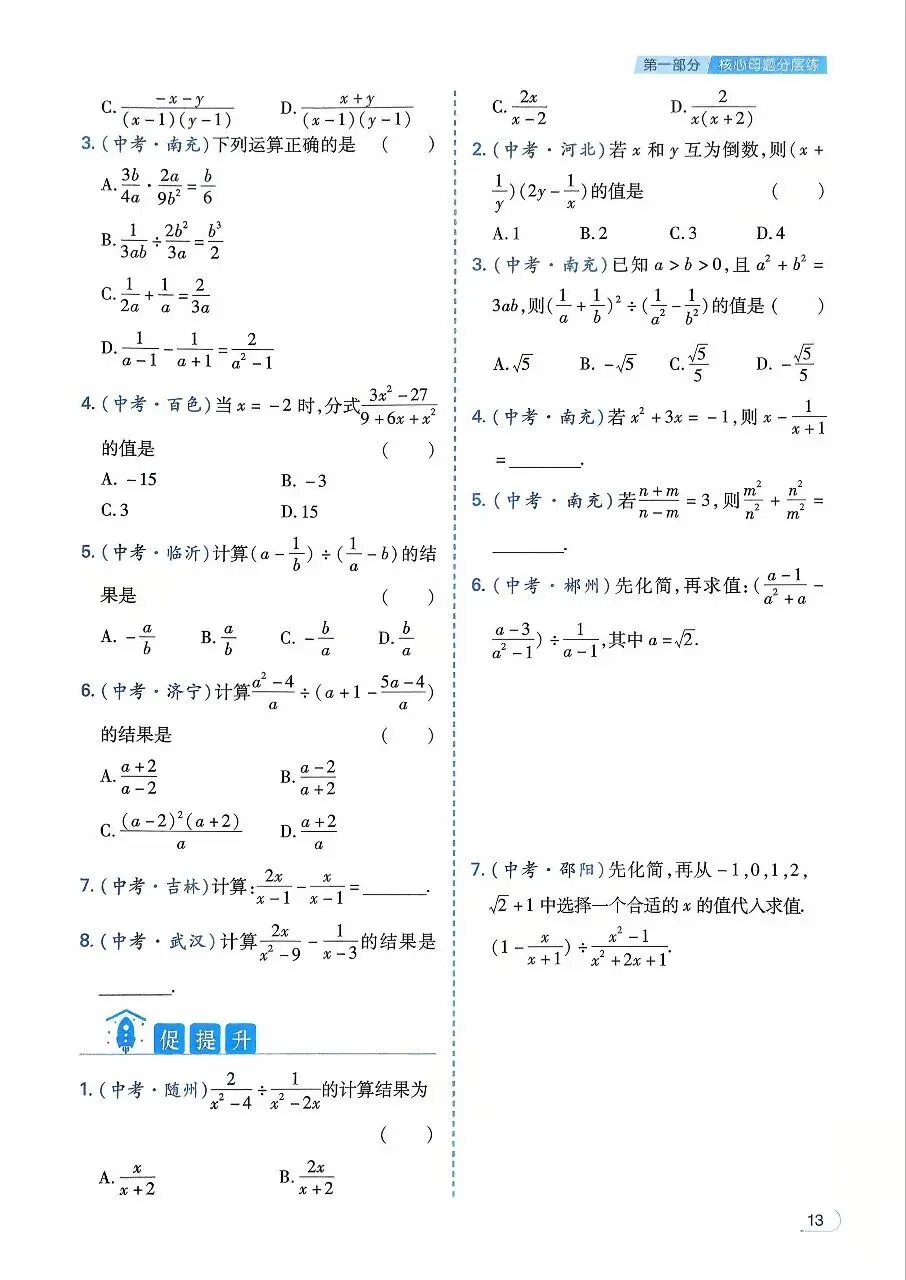 第一部分 核心母题分层练
C. $\frac{-x-y}{(x-1)(y-1)}$ D. $\frac{x+y}{(x-1)(y-1)}$
3. (中考·南充)下列运算正确的是 ( )
A. $\frac{3b}{4a}·\frac{2a}{9b^2}=\frac{b}{6}$
B. $\frac{1}{3ab}÷\frac{2b^2}{3a}=\frac{b^3}{2}$
C. $\frac{1}{2a}+\frac{1}{a}=\frac{2}{3a}$
D. $\frac{1}{a-1}-\frac{1}{a+1}=\frac{2}{a^2-1}$
4. (中考·百色)当 x = -2 时,分式$\frac{3x^2-27}{9+6x+x^2}$
的值是 ( )
A. -15 B. -3
C. 3 D. 15
5. (中考·临沂)计算$(a-\frac{1}{b})÷(\frac{1}{a}-b)$的结
果是 ( )
A. $-\frac{a}{b}$ B. $\frac{a}{b}$ C. $-\frac{b}{a}$ D. $\frac{b}{a}$
6. (中考·济宁)计算$\frac{a^2-4}{a}÷(a+1-\frac{5a-4}{a})$
的结果是 ( )
A. $\frac{a+2}{a-2}$ B. $\frac{a-2}{a+2}$
C. $\frac{(a-2)^2(a+2)}{a}$ D. $\frac{a+2}{a}$
7. (中考·吉林)计算:$\frac{2x}{x-1}-\frac{x}{x-1}=$______.
8. (中考·武汉)计算$\frac{2x}{x^2-9}-\frac{1}{x-3}$的结果是
______.
促提升
1. (中考·随州)$\frac{2}{x^2-4}÷\frac{1}{x^2-2x}$的计算结果为
( )
A. $\frac{x}{x+2}$ B. $\frac{2x}{x+2}$
C. $\frac{2x}{x-2}$ D. $\frac{2}{x(x+2)}$
2. (中考·河北)若 x 和 y 互为倒数,则(x +
$\frac{1}{y})(2y-\frac{1}{x})$的值是 ( )
A. 1 B. 2 C. 3 D. 4
3. (中考·南充)已知 a > b > 0,且 $a^2+b^2=$
3ab,则$(\frac{1}{a}+\frac{1}{b})^2÷(\frac{1}{a^2}-\frac{1}{b^2})$的值是 ( )
A. $\sqrt{5}$ B. $-\sqrt{5}$ C. $\frac{\sqrt{5}}{5}$ D. $-\frac{\sqrt{5}}{5}$
4. (中考·南充)若 $x^2+3x=-1$,则 $x-\frac{1}{x+1}$
=______.
5. (中考·南充)若$\frac{n+m}{n-m}=3$,则$\frac{m^2}{n^2}+\frac{n^2}{m^2}=$
______.
6. (中考·郴州)先化简,再求值:$(\frac{a-1}{a^2+a}-$
$\frac{a-3}{a^2-1})÷\frac{1}{a-1}$,其中 $a=\sqrt{2}$.
7. (中考·邵阳)先化简,再从 -1,0,1,2,
$\sqrt{2}+1$ 中选择一个合适的 x 的值代入求值.
$(1-\frac{x}{x+1})÷\frac{x^2-1}{x^2+2x+1}$.
13